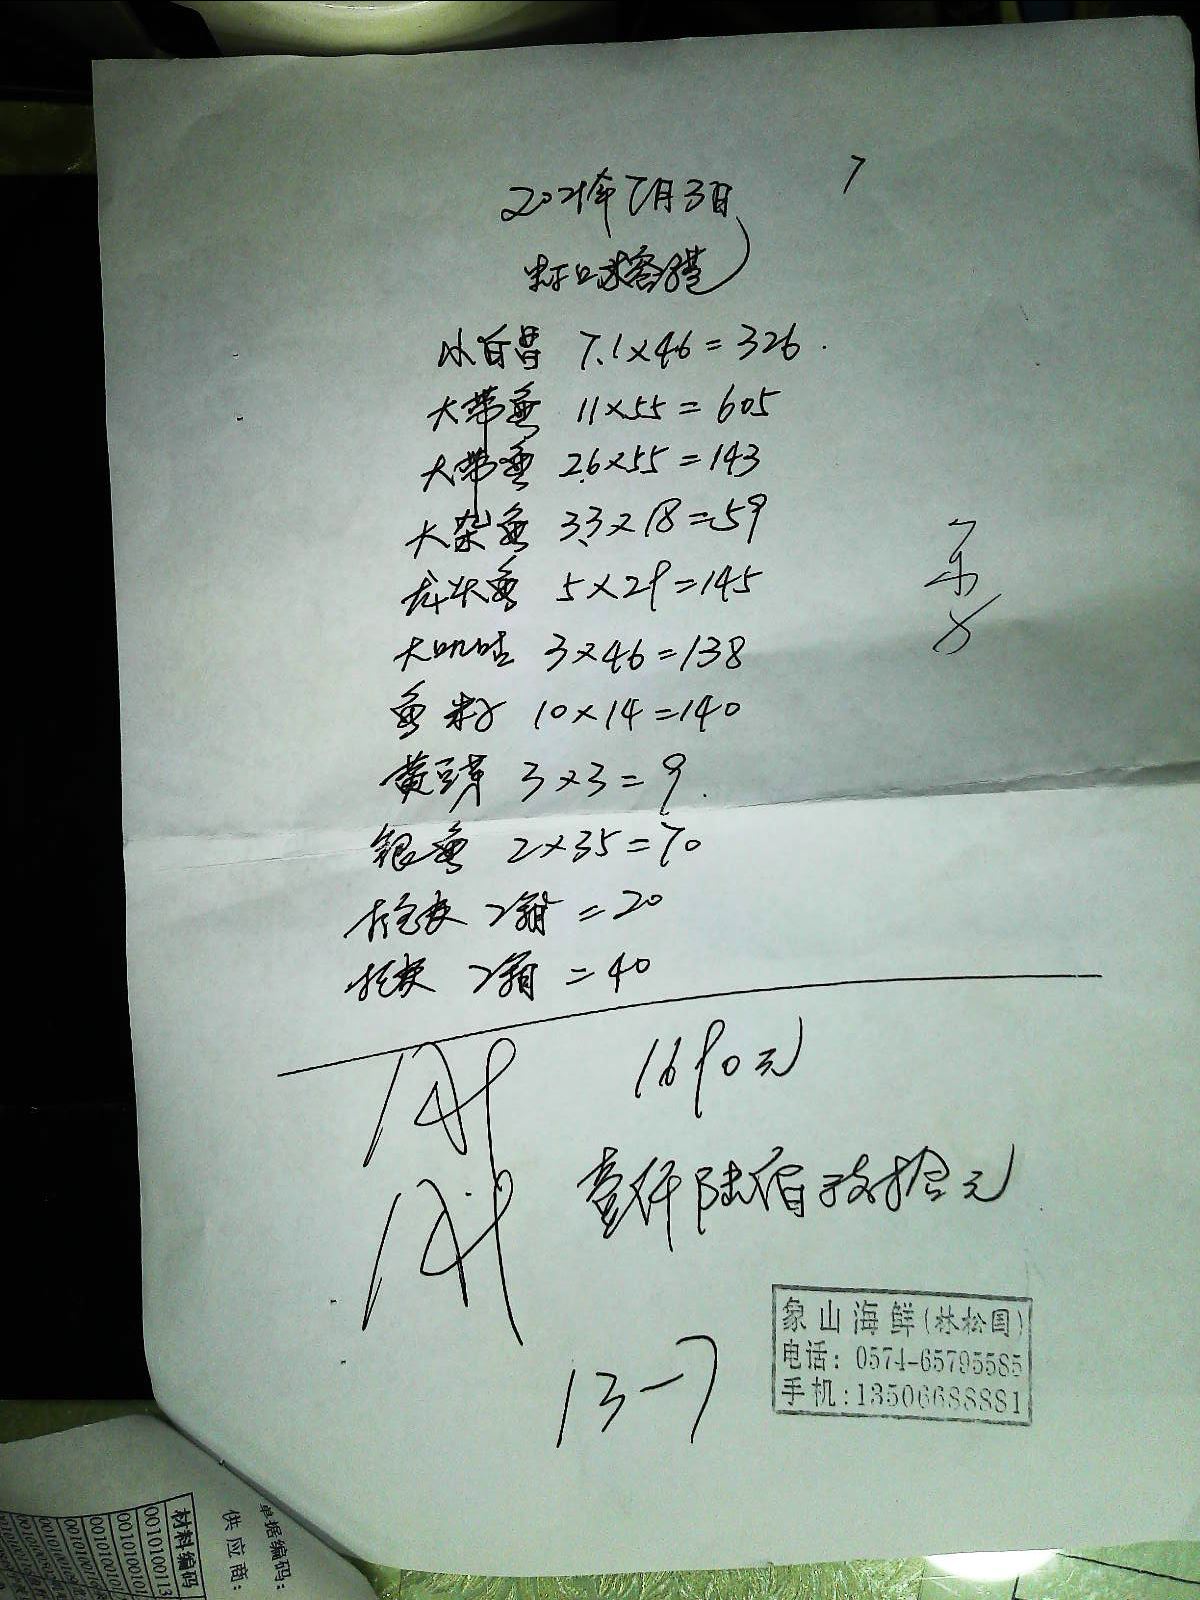 7
2021年7月3日
小白昌 7.1×46=326.
大带鱼 11×55=605
大带鱼 2.6×55=143
大杂鱼 3.3×18=59
龙头鱼 5×29=145
大叽咕 3×46=138
鱼籽 10×14=140
黄豆芽 3×3=9.
银鱼 2×35=70
2箱=20
2箱=40
1690元
壹仟陆佰玖拾元
13-7
象山海鲜(林松国)
电话:0574-65795585
手机:13506688881
单据编码:
供应商:
材料编码
0010100113